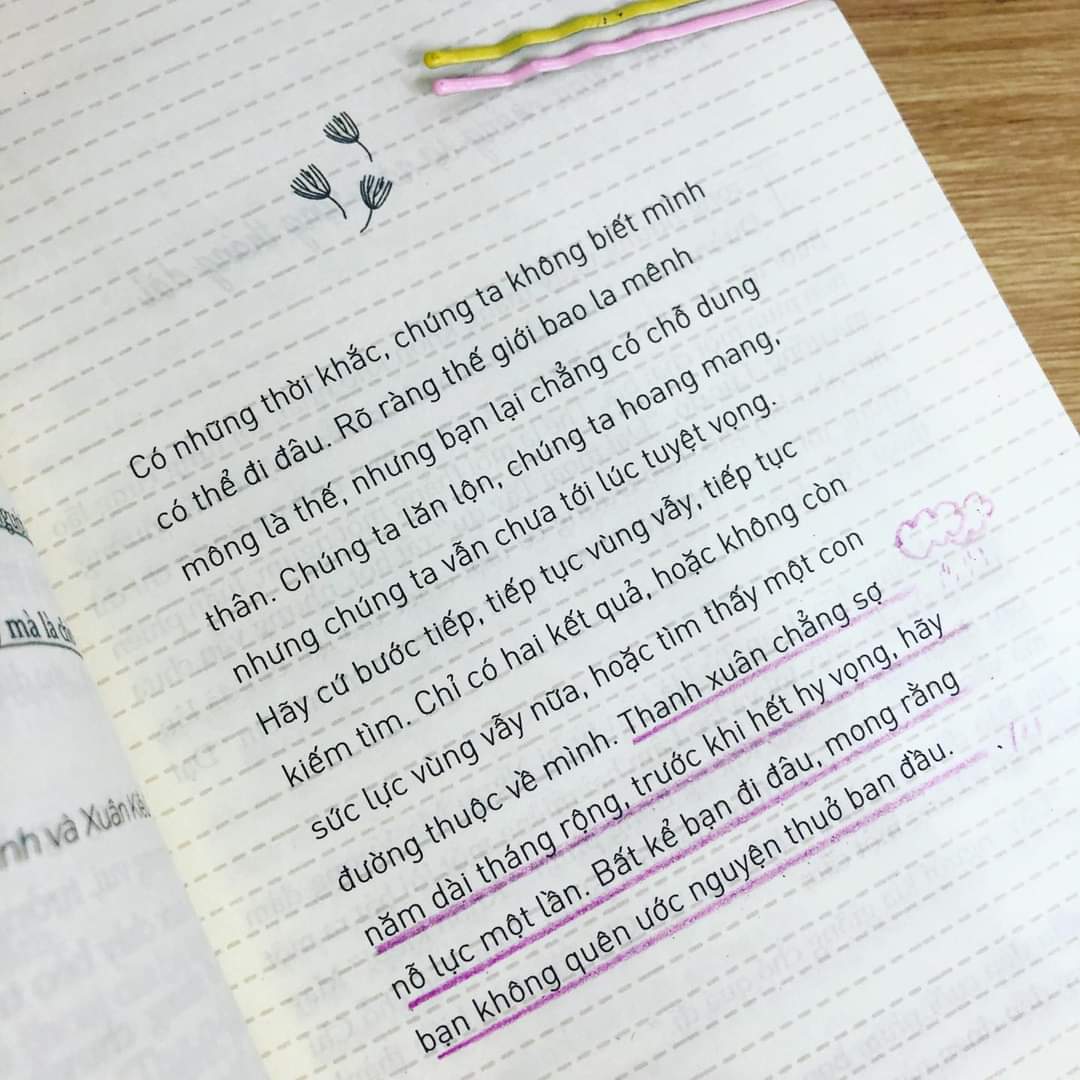 Có những thời khắc, chúng ta không biết mình
có thể đi đâu. Rõ ràng thế giới bao la mênh
mông là thế, nhưng bạn lại chẳng có chỗ dung
thân. Chúng ta lăn lộn, chúng ta hoang mang,
nhưng chúng ta vẫn chưa tới lúc tuyệt vọng.
Hãy cứ bước tiếp, tiếp tục vùng vẫy, tiếp tục
kiếm tìm. Chỉ có hai kết quả, hoặc không còn
sức lực vùng vẫy nữa, hoặc tìm thấy một con
đường thuộc về mình. Thanh xuân chẳng sợ
năm dài tháng rộng, trước khi hết hy vọng, hãy
nỗ lực một lần. Bất kể bạn đi đâu, mong rằng
bạn không quên ước nguyện thuở ban đầu.
mà là
và Xuân